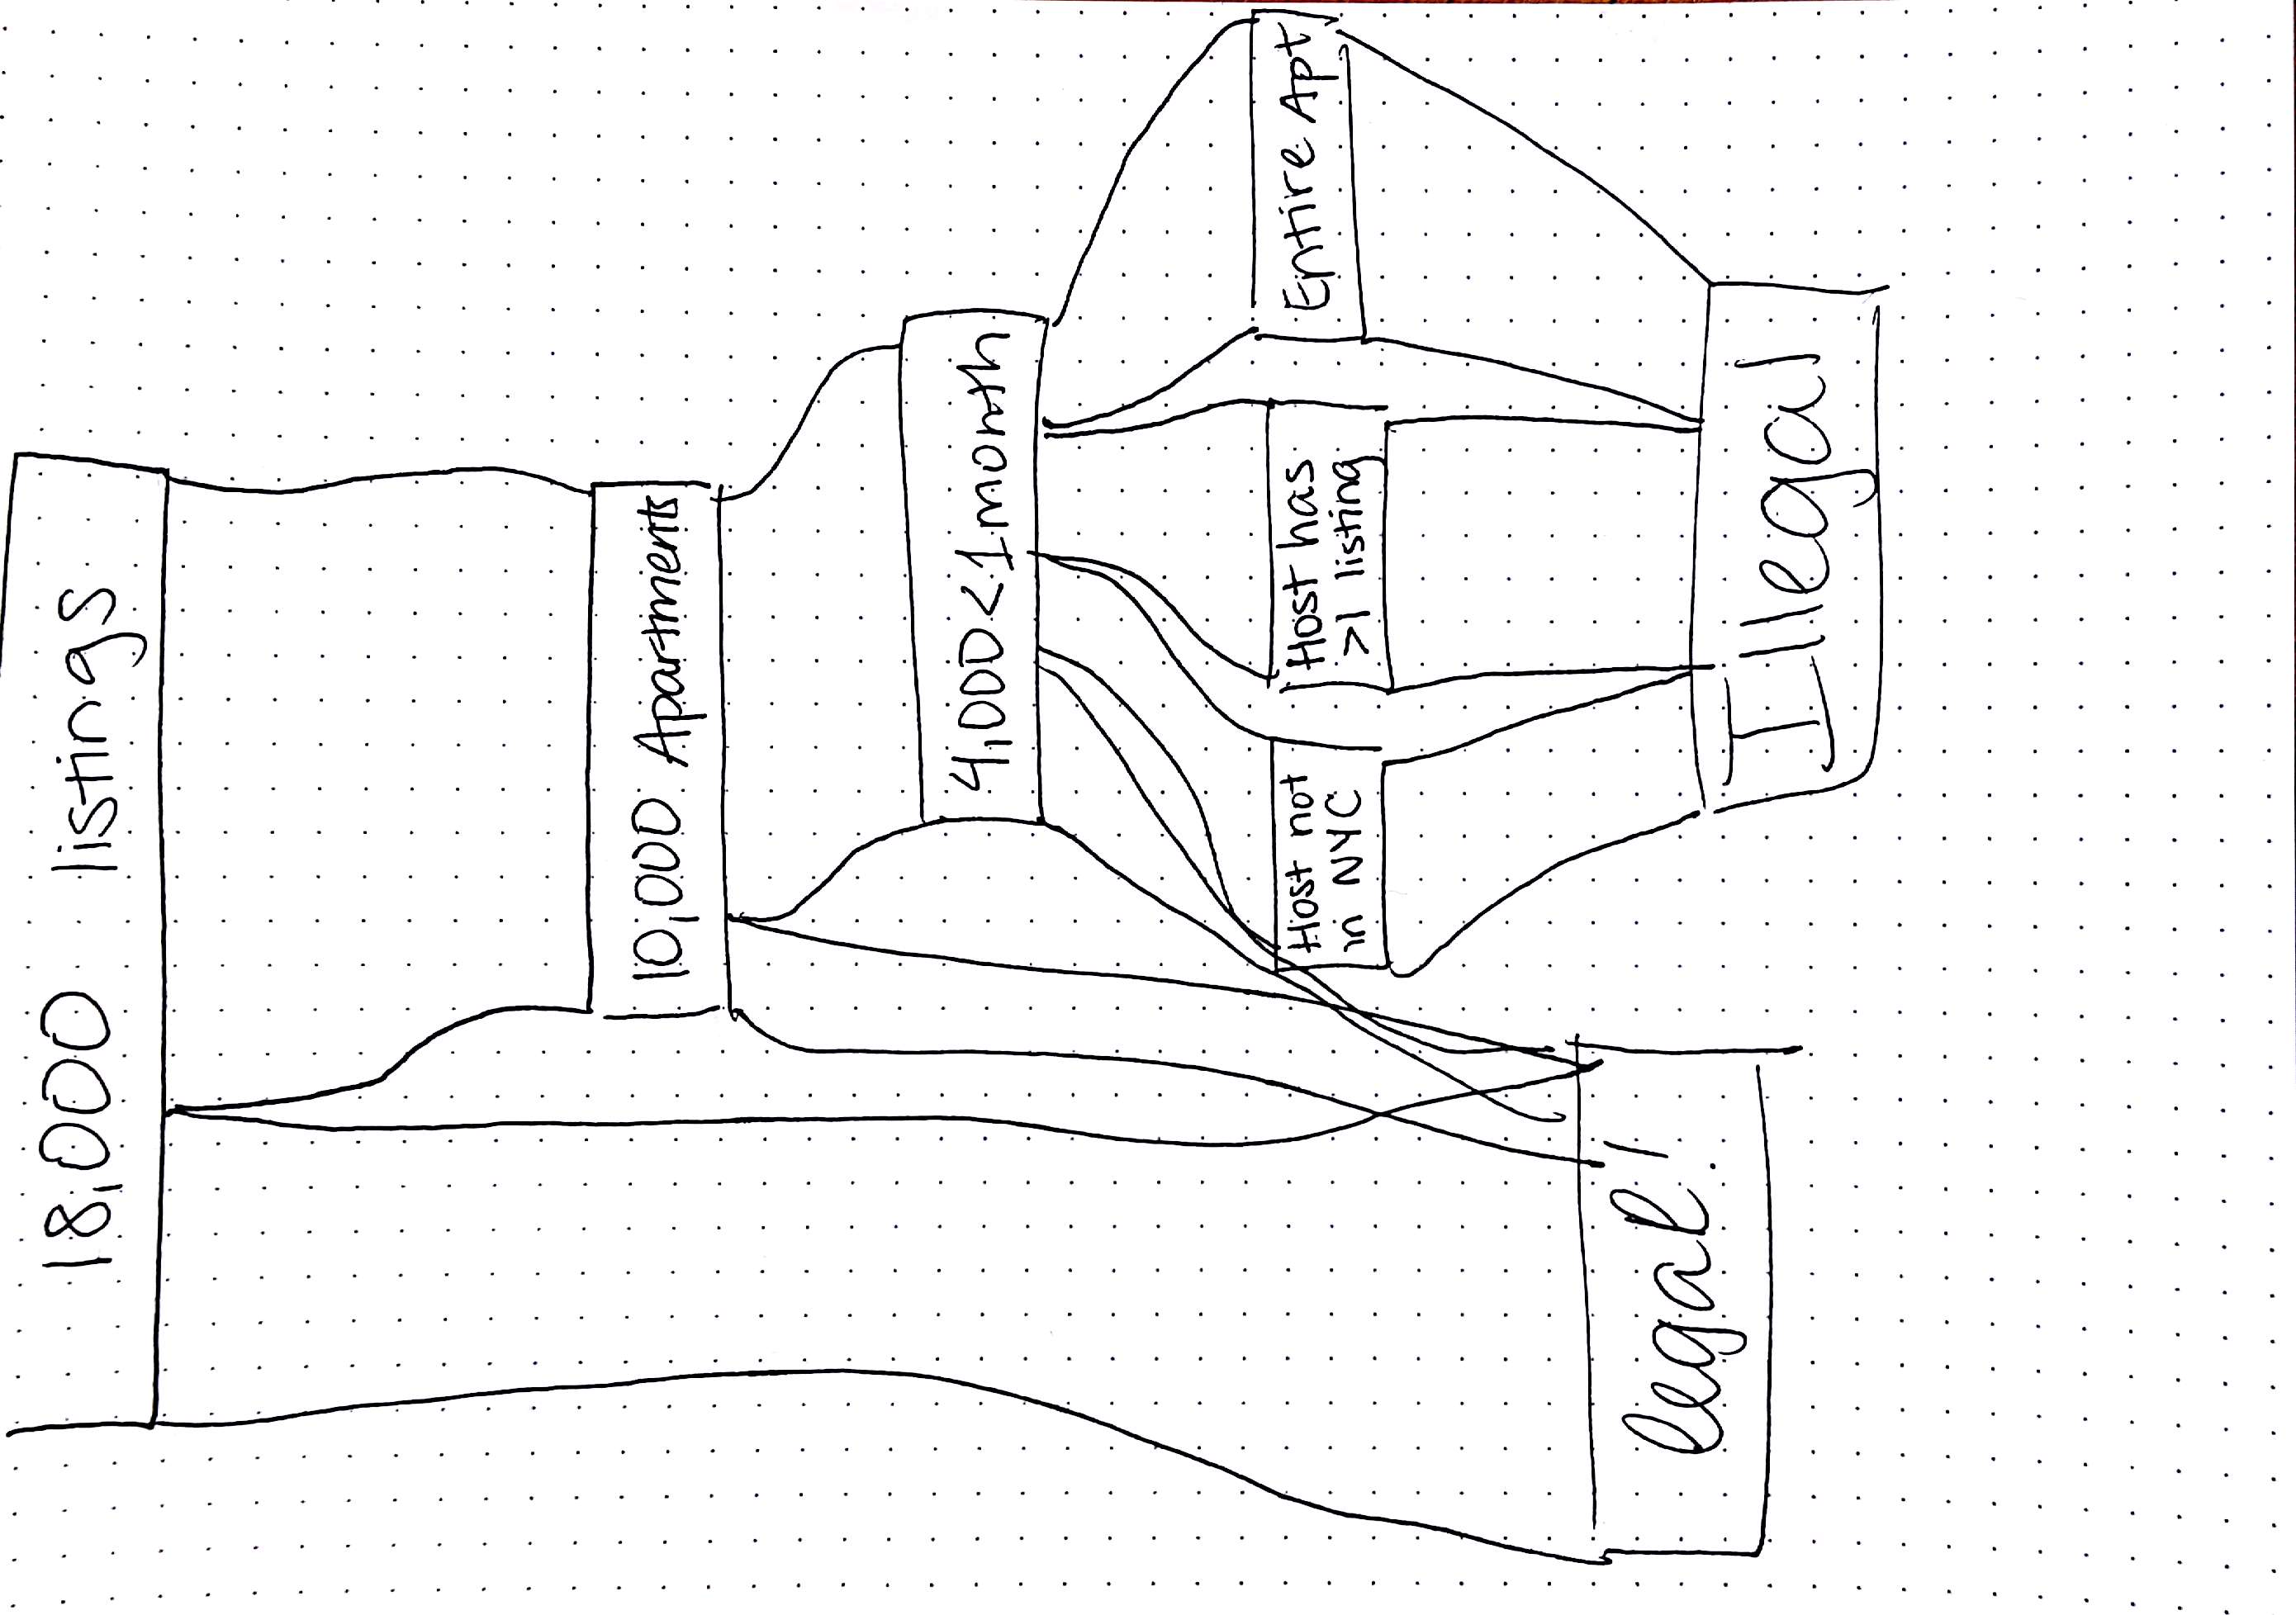 18,000 listings
10,000 Apartments
4,000 < 1 month
Entire Apt
Host has
>1 listing
Host not
in NYC
Illegal
legal!